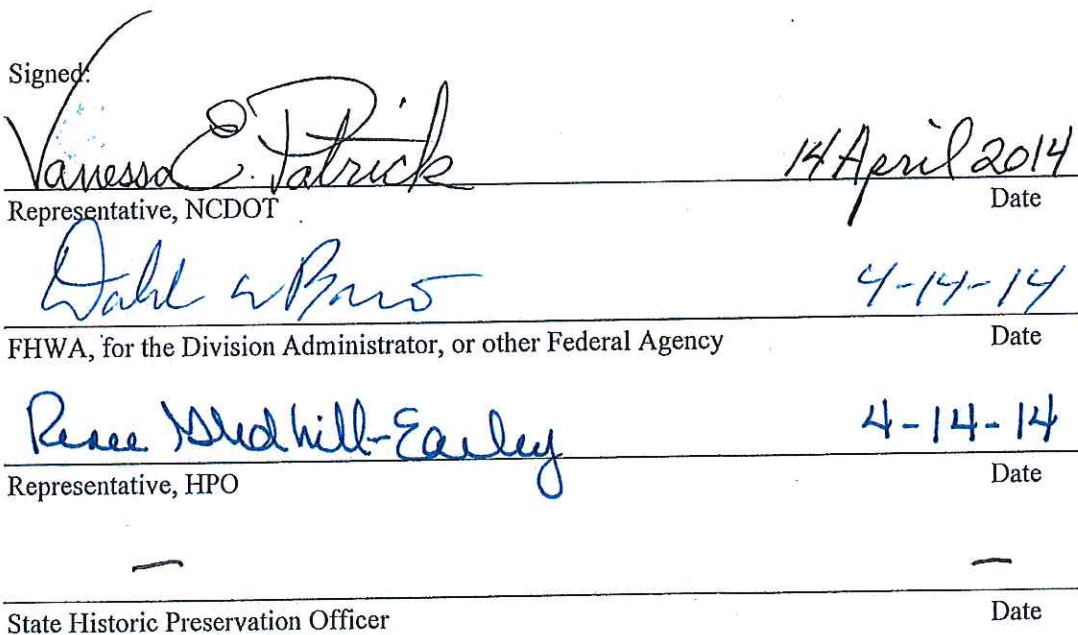 Signed:
Vanessa E. Patrick 14 April 2014
Representative, NCDOT Date
4-14-14
FHWA, for the Division Administrator, or other Federal Agency Date
Renee Gledhill-Earley 4-14-14
Representative, HPO Date
— —
State Historic Preservation Officer Date